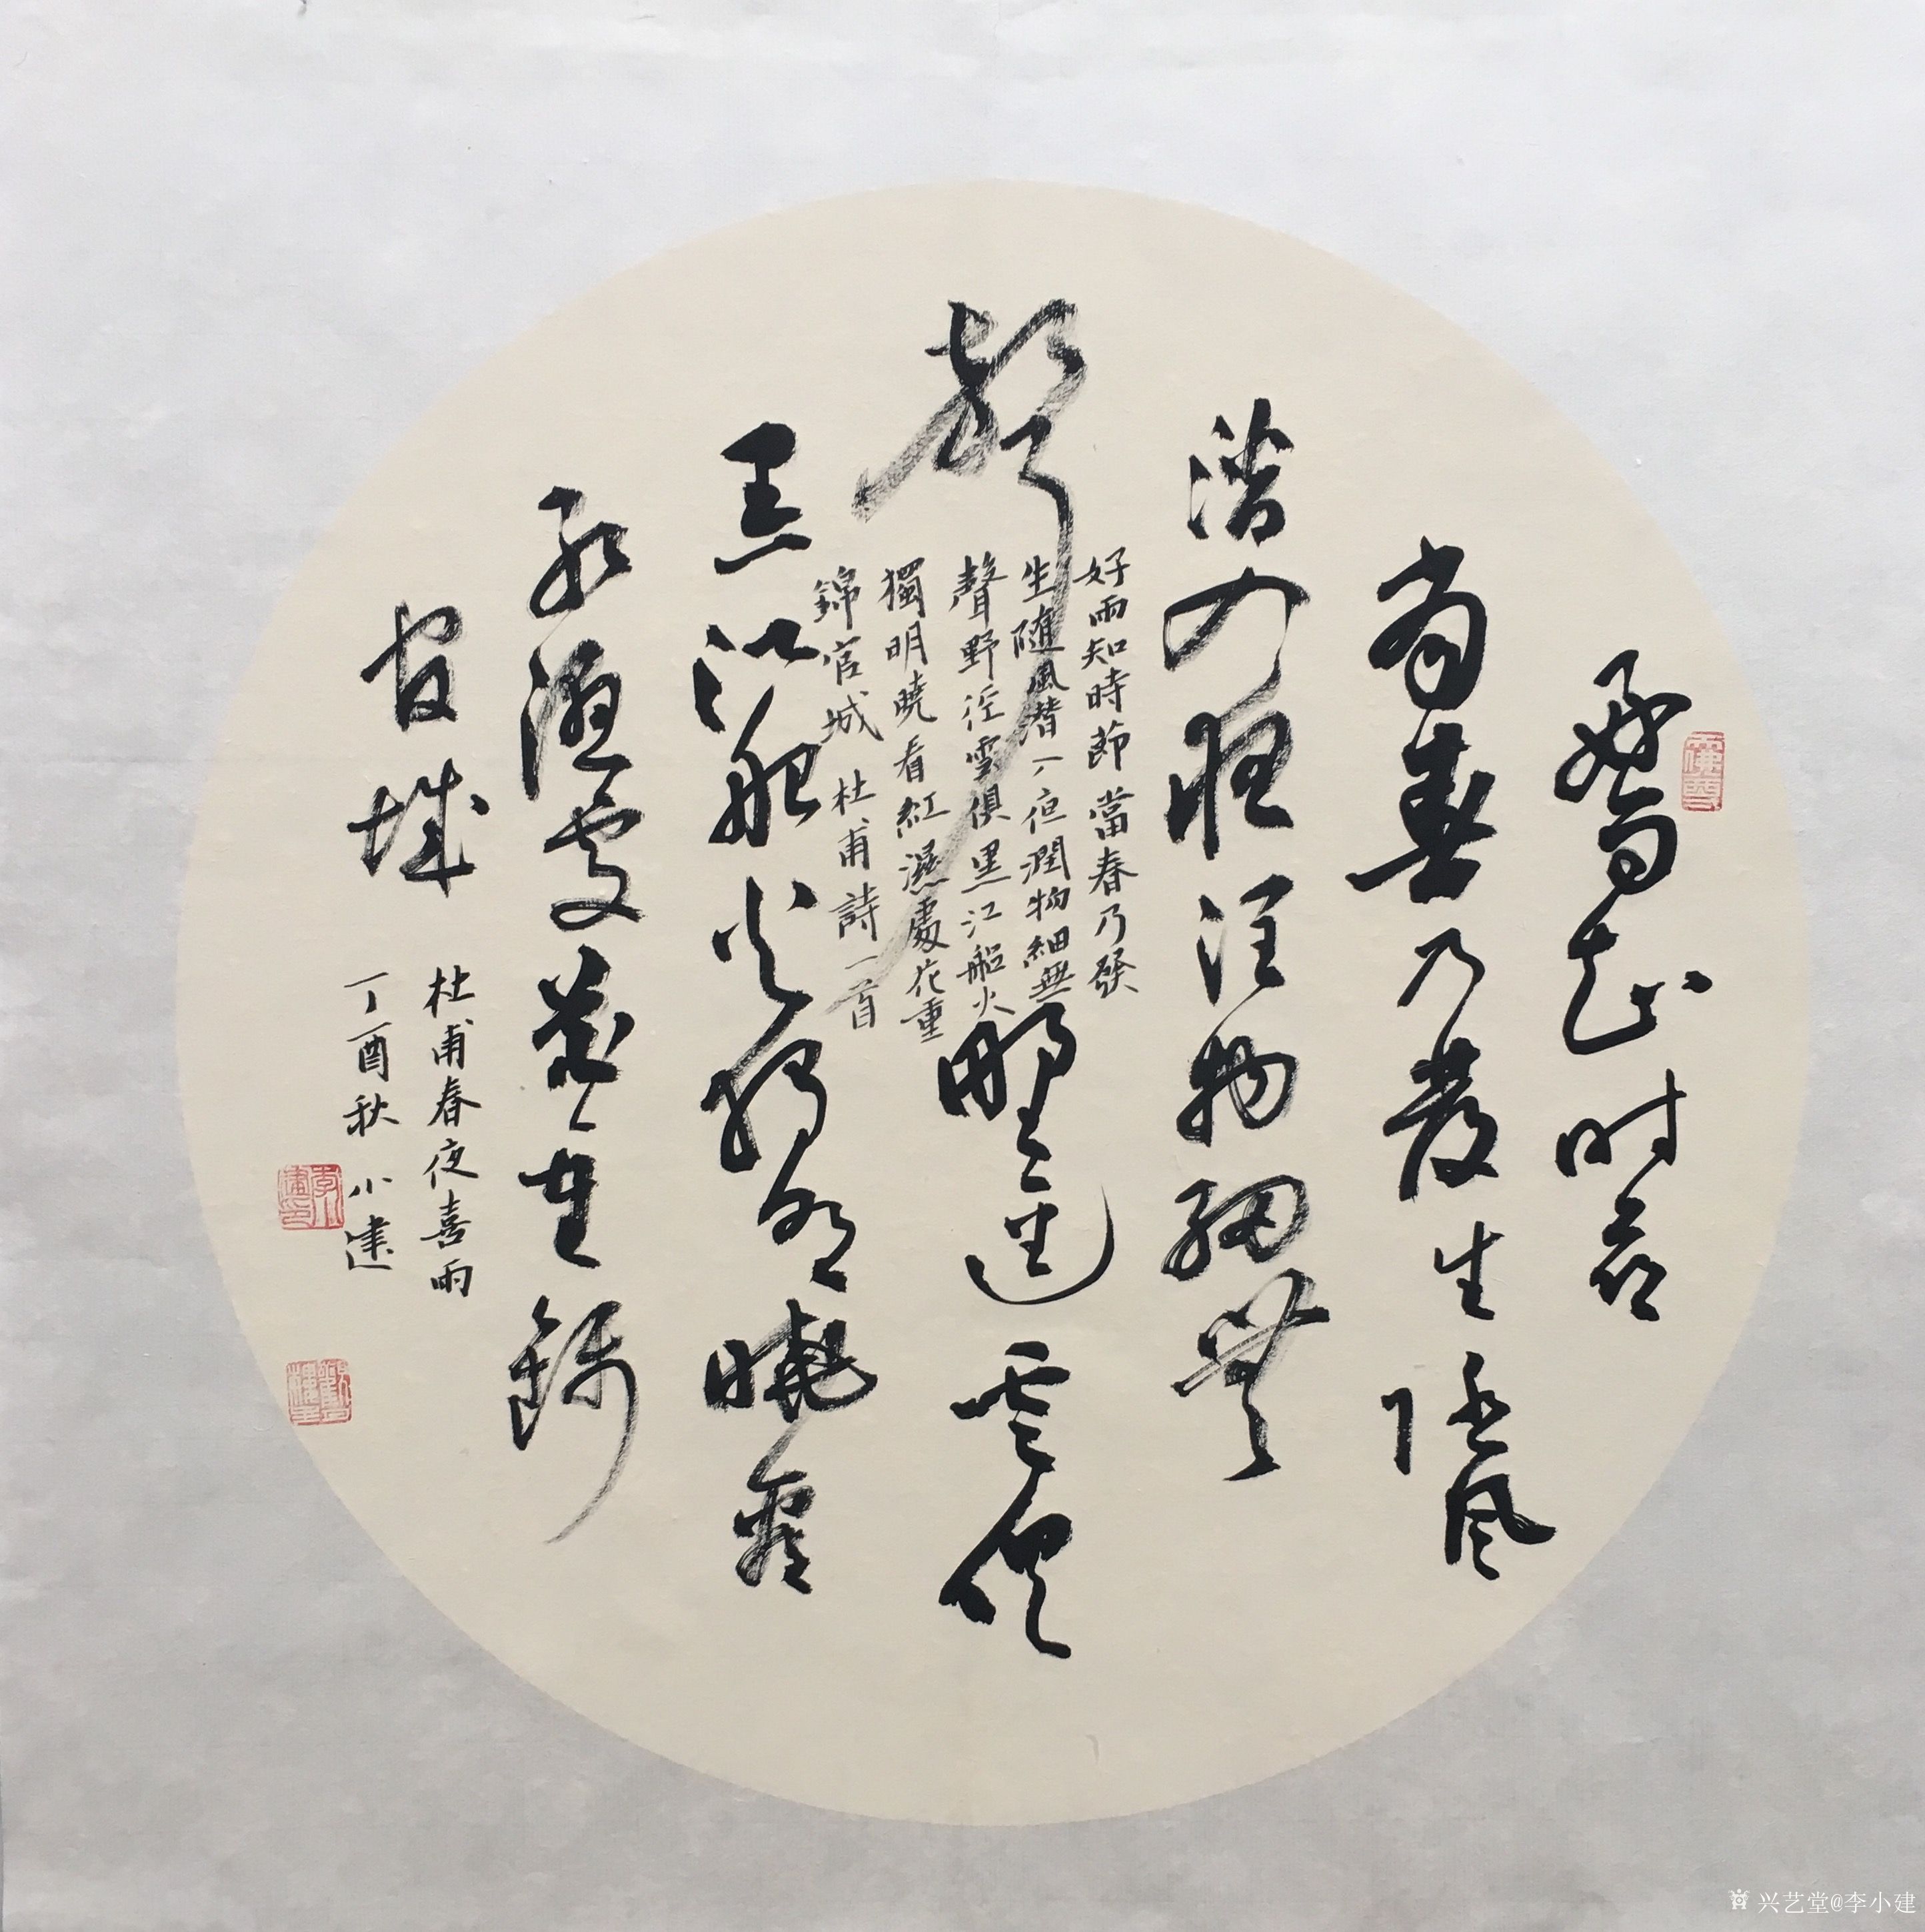 好雨知时节
当春乃发生随风
潜入夜润物细無
声野迳云俱
黑江船火独明晓看
红湿处花重锦
官城
好雨知時節當春乃發
生随風潜入夜潤物細無
聲野径雲俱黑江船火
獨明曉看紅濕處花重
錦官城 杜甫詩一首
杜甫春夜喜雨
丁酉秋 小建
兴艺堂@李小建